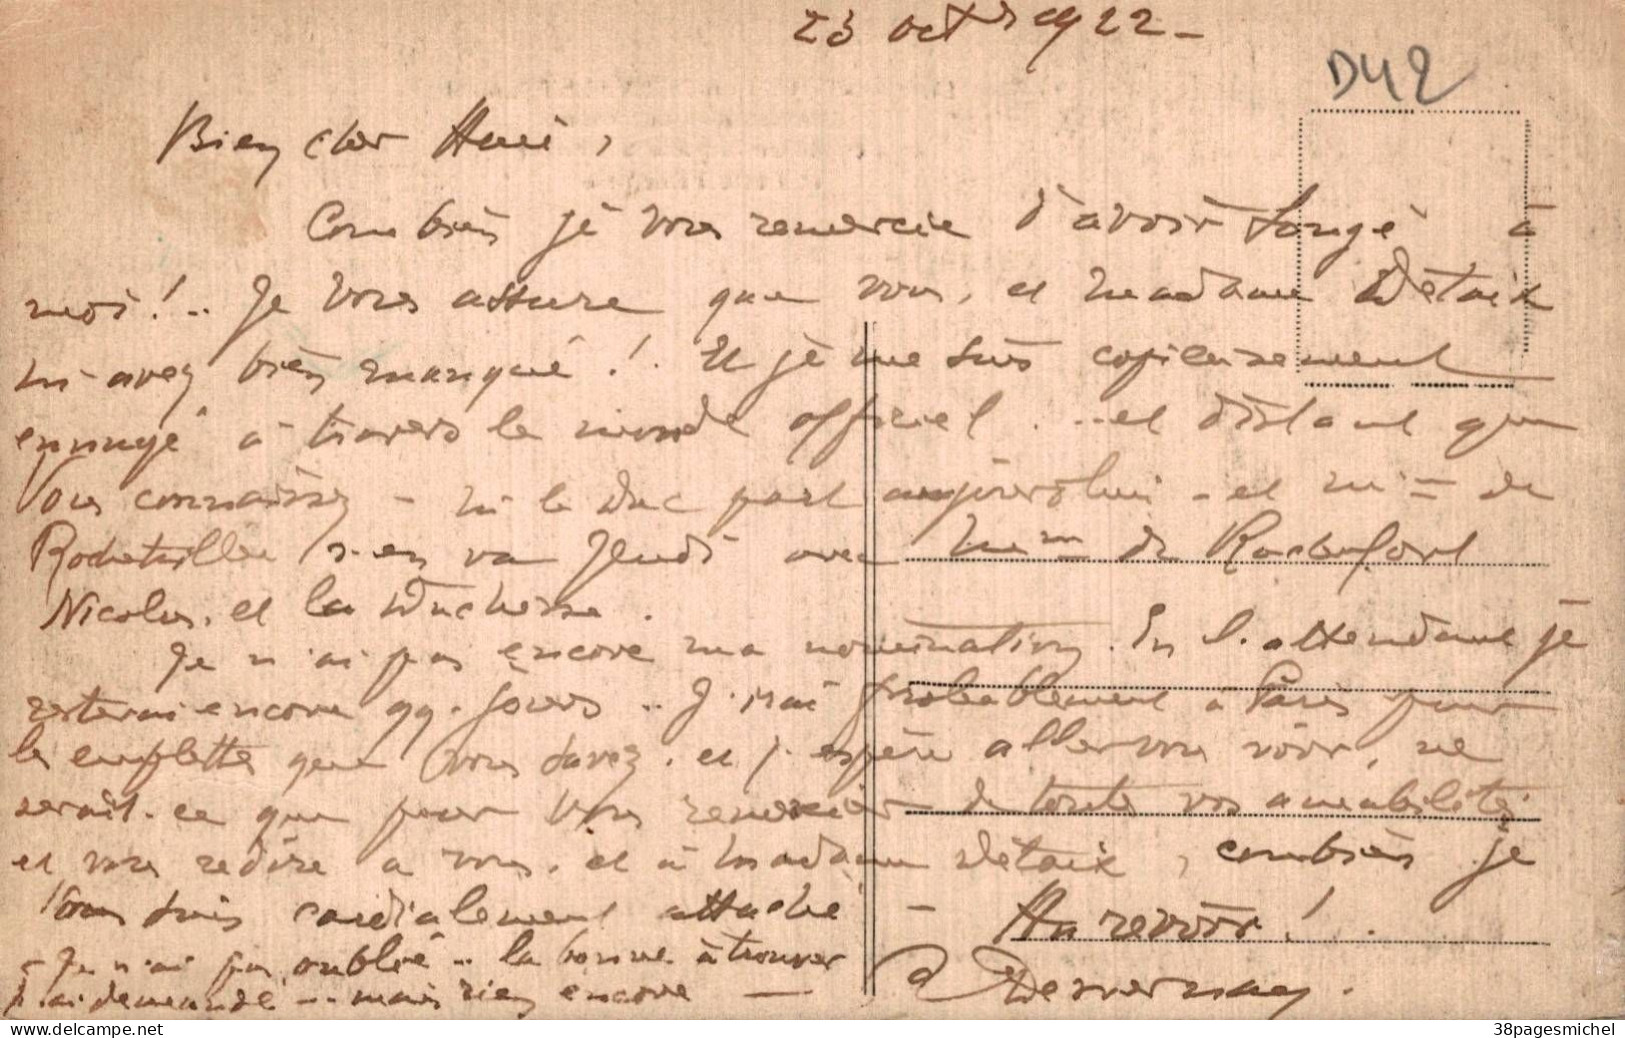 23 octbre 1922 -
D42
Bien cher Ami,
Combien je vous remercie d'avoir songé à
moi !.. Je vous assure que vous, et Madame Détaix
m'avez bien manqué ! Et je me suis copieusement
ennuyé à travers le monde officiel ...et distant que
vous connaissez - M. le Duc part aujourd'hui - et Mme de
s'en va Jeudi avec Mme de Rochefort
Nicolas, et la Duchesse.
Je n'ai pas encore ma nomination. En l'attendant je
resterai encore qq. jours .. J'irai probablement à Paris pour
les emplettes que vous savez. et j'espère aller vous voir, ne
serait-ce que pour vous remercier de toutes vos amabilités
et vous redire à vous, et à Madame Détaix, combien je
vous suis cordialement attaché - Au revoir !.
- Je n'ai pas oublié .. la bonne à trouver
J'ai demandé ... mais rien encore —
Desvernay.
delcampe.net
38pagesmichel